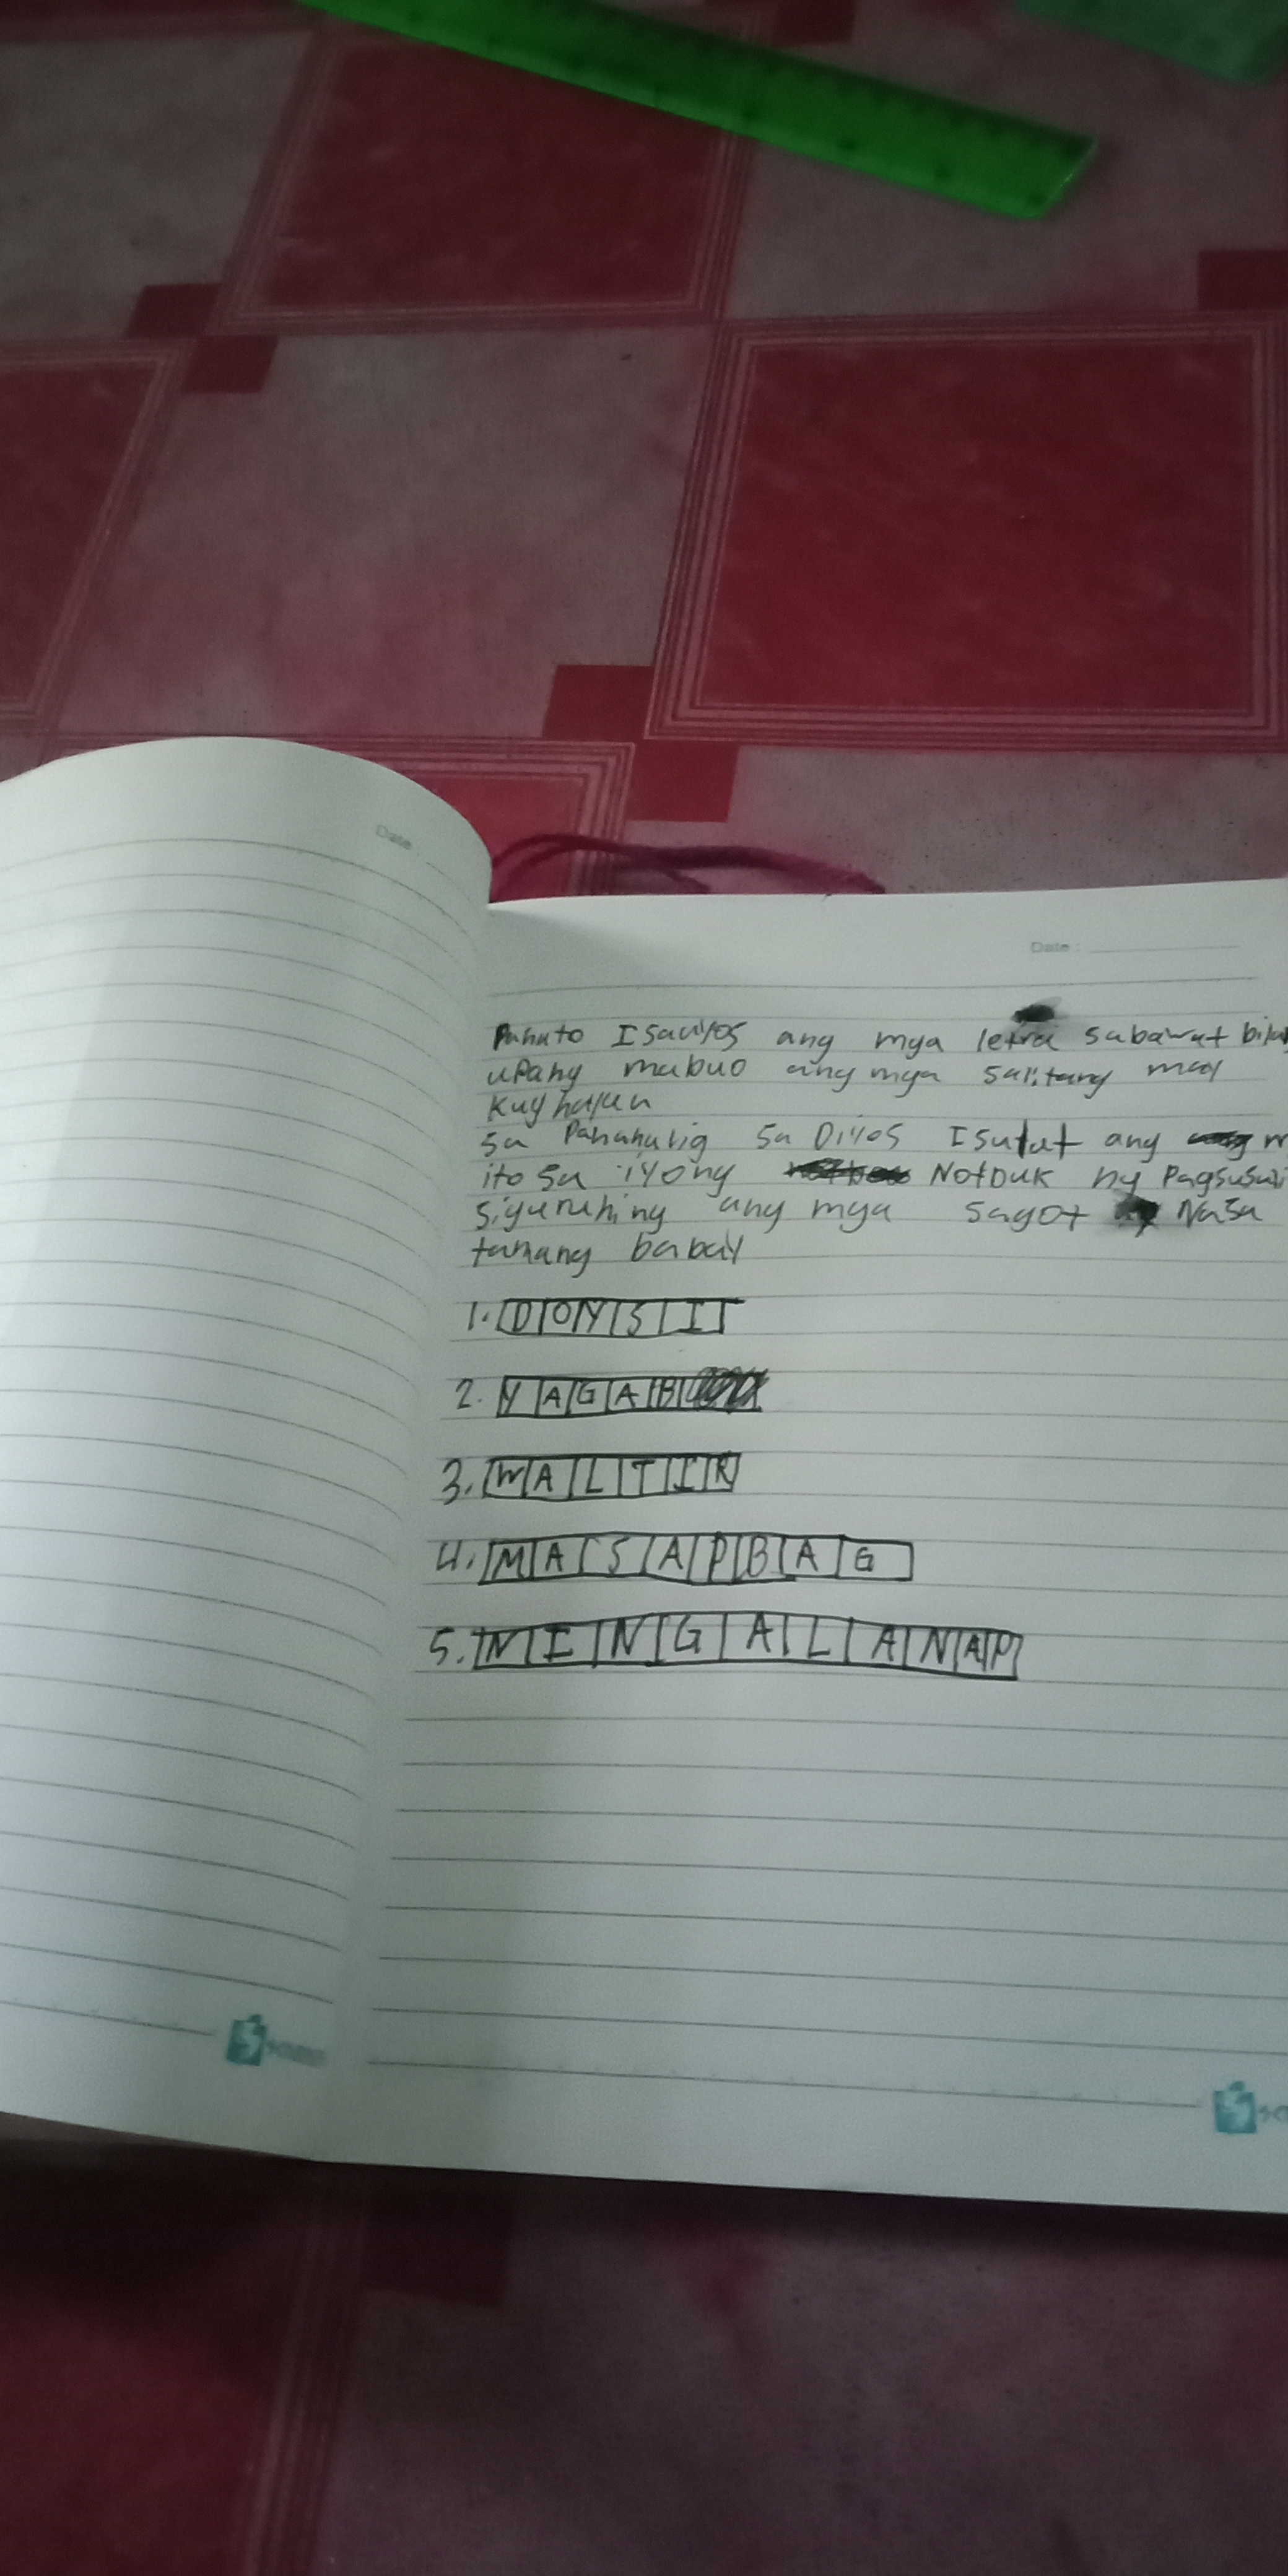 Date
Date :
Panuto Isaayos ang mga letra sabawat
upang mabuo ang mga salitang may
kayhayan
sa Pananalig sa Diyos Isulat ang
ito sa iyong Notbuk ng Pagsusuri
siguruhing ang mga sagot Nasa
tamang babay
1. DONSI
2. YAGAB
3. WALTIR
4. MASAPBAG
5. NINGALANAP